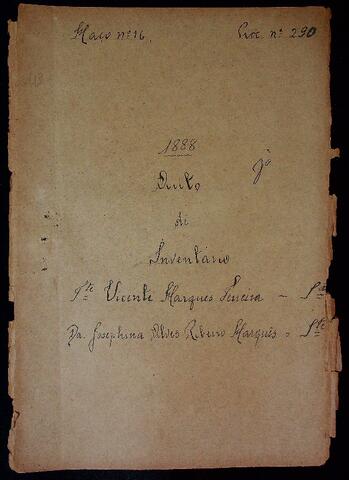 Maço nº 16. Proc. nº 290
1888
Auto
di
Inventário
Vicente Marques Pereira -
Da. Josephina Alves Ribeiro Marques -